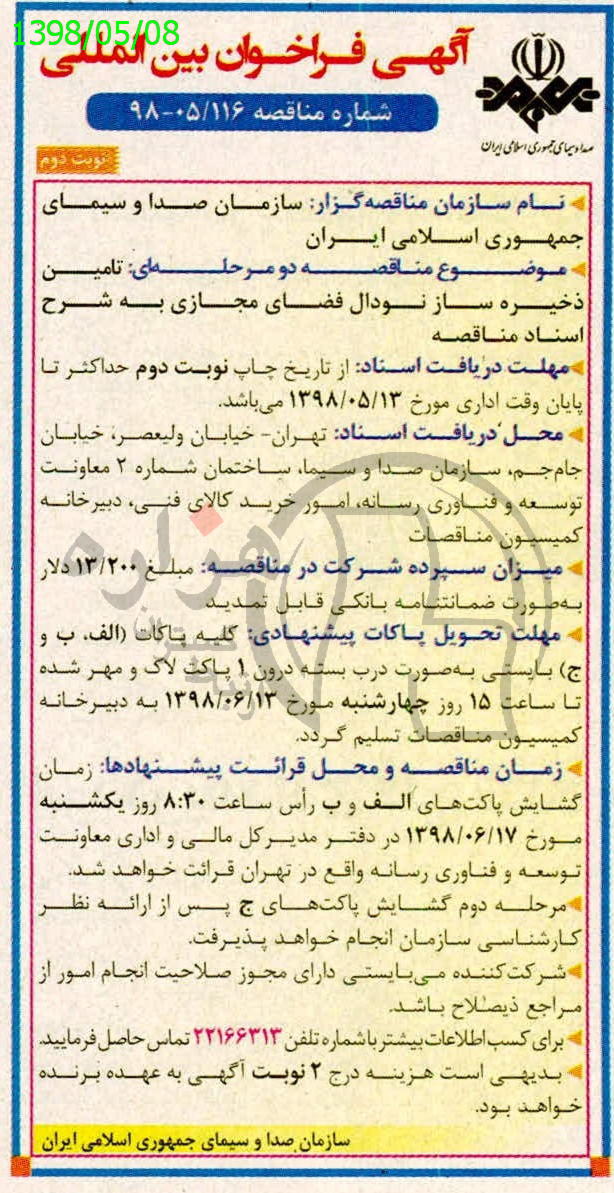 1398/05/08
آگهی فراخوان بین المللی
شماره مناقصه ۹۸-۰۵/۱۱۶
صدا و سیمای جمهوری اسلامی ایران
نوبت دوم
نام سازمان مناقصه‌گزار: سازمان صدا و سیمای
جمهوری اسلامی ایران
موضوع مناقصه دو مرحله‌ای: تامین
ذخیره ساز نودال فضای مجازی به شرح
اسناد مناقصه
مهلت دریافت اسناد: از تاریخ چاپ نوبت دوم حداکثر تا
پایان وقت اداری مورخ ۱۳۹۸/۰۵/۱۳ می‌باشد.
محل دریافت اسناد: تهران- خیابان ولیعصر، خیابان
جام‌جم، سازمان صدا و سیما، ساختمان شماره ۲ معاونت
توسعه و فناوری رسانه، امور خرید کالای فنی، دبیرخانه
کمیسیون مناقصات
میزان سپرده شرکت در مناقصه: مبلغ ۱۳/۲۰۰ دلار
به‌صورت ضمانتنامه بانکی قابل تمدید
مهلت تحویل پاکات پیشنهادی: کلیه پاکات (الف، ب و
ج) بایستی به‌صورت درب بسته درون ۱ پاکت لاک و مهر شده
تا ساعت ۱۵ روز چهارشنبه مورخ ۱۳۹۸/۰۶/۱۳ به دبیرخانه
کمیسیون مناقصات تسلیم گردد.
زمان مناقصه و محل قرائت پیشنهادها: زمان
گشایش پاکت‌های الف و ب رأس ساعت ۸:۳۰ روز یکشنبه
مورخ ۱۳۹۸/۰۶/۱۷ در دفتر مدیرکل مالی و اداری معاونت
توسعه و فناوری رسانه واقع در تهران قرائت خواهد شد.
مرحله دوم گشایش پاکت‌های ج پس از ارائه نظر
کارشناسی سازمان انجام خواهد پذیرفت.
شرکت‌کننده می‌بایستی دارای مجوز صلاحیت انجام امور از
مراجع ذیصلاح باشد.
برای کسب اطلاعات بیشتر با شماره تلفن ۲۲۱۶۶۳۱۳ تماس حاصل فرمایید.
بدیهی است هزینه درج ۲ نوبت آگهی به عهده برنده
خواهد بود.
سازمان صدا و سیمای جمهوری اسلامی ایران
هزاره